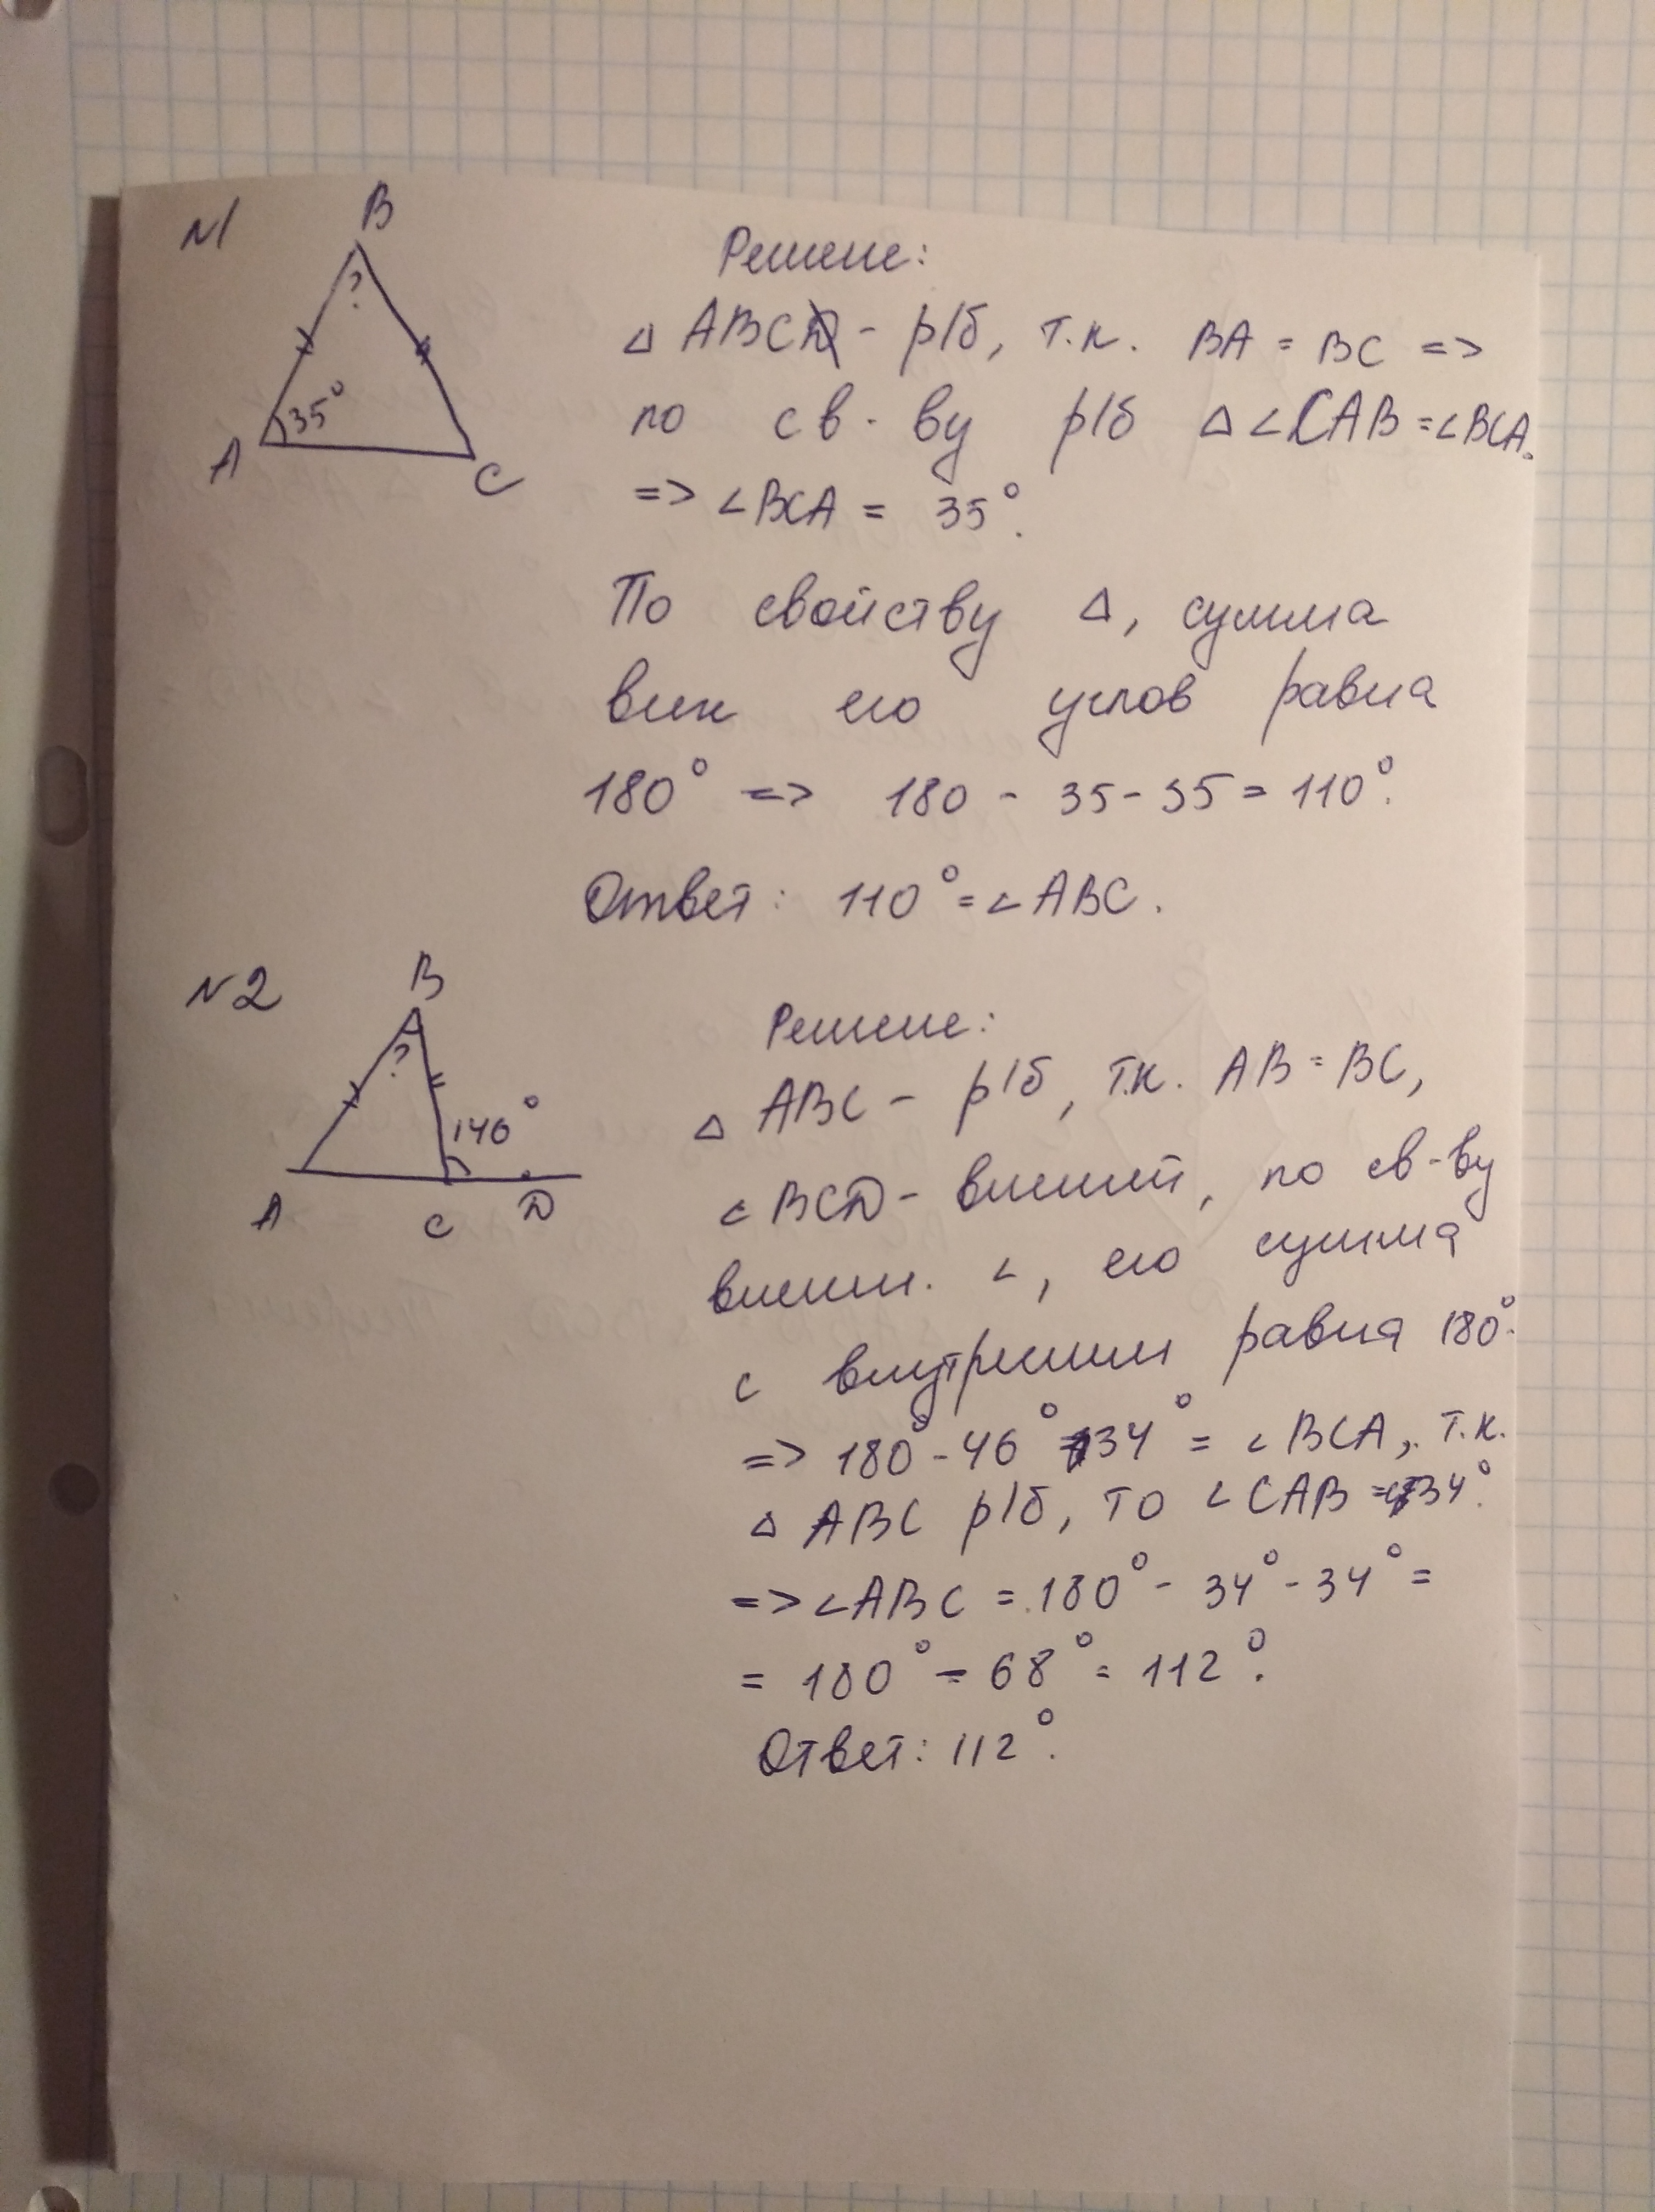 №1
B
?
35°
A
C
Решение:
△ ABC - р/б, т.к. BA = BC =>
по св-ву р/б △ ∠CAB = ∠BCA.
=> ∠BCA = 35°.
По свойству △, сумма
вну его углов равна
180° => 180 - 35 - 35 = 110°.
Ответ: 110° = ∠ABC.
№2
B
?
146°
A
C
D
Решение:
△ ABC - р/б, т.к. AB = BC,
∠BCD - внешний, по св-ву
внешн. ∠, его сумма
с внутренним равна 180°.
=> 180° - 46° = 34° = ∠BCA, т.к.
△ ABC р/б, то ∠CAB = 34°.
=> ∠ABC = 180° - 34° - 34° =
= 180° - 68° = 112°.
Ответ: 112°.